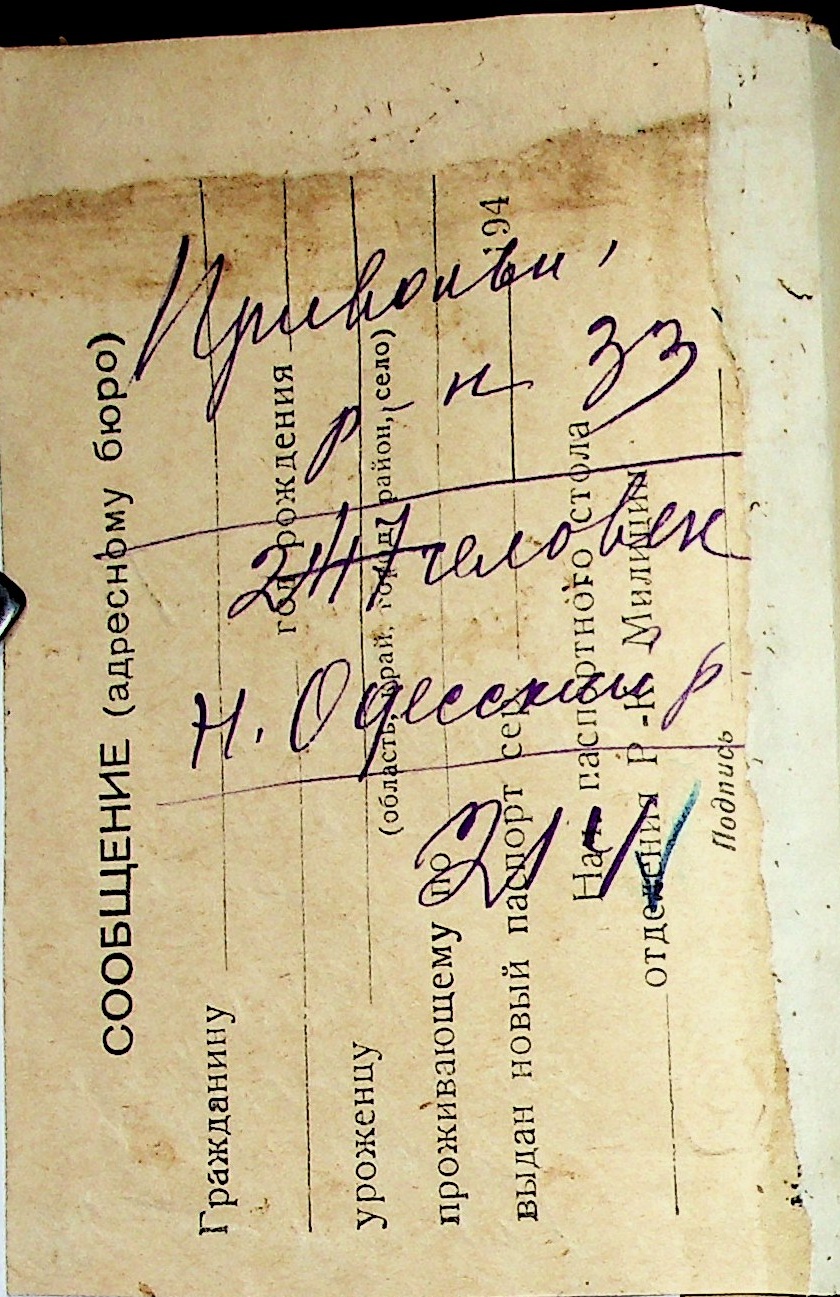 СООБЩЕНИЕ (адресному бюро)
Гражданину
год рождения
уроженцу
(область, край, город, район, село)
проживающему по
выдан новый паспорт сер 194
Нач. паспортного стола
отделения Р-К Милиции
Подпись
р-н 33
человек
Н. Одесский р
214